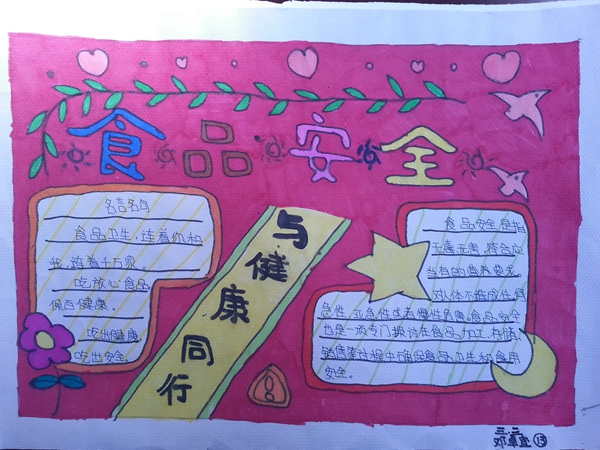 食品安全
与健康同行
名言名句
食品卫生,连着你和
我,连着千万家。
吃放心食品
保百健康.
吃出健康
吃出安全.
食品安全是指
无毒无害,符合应
当有的营养要求,
对人体不造成任何
急性,亚急性或者慢性危害。食品安全
也是一项专门探讨在食品加工、存储、
销售等过程中确保食品卫生和食用
安全。
三.二
13